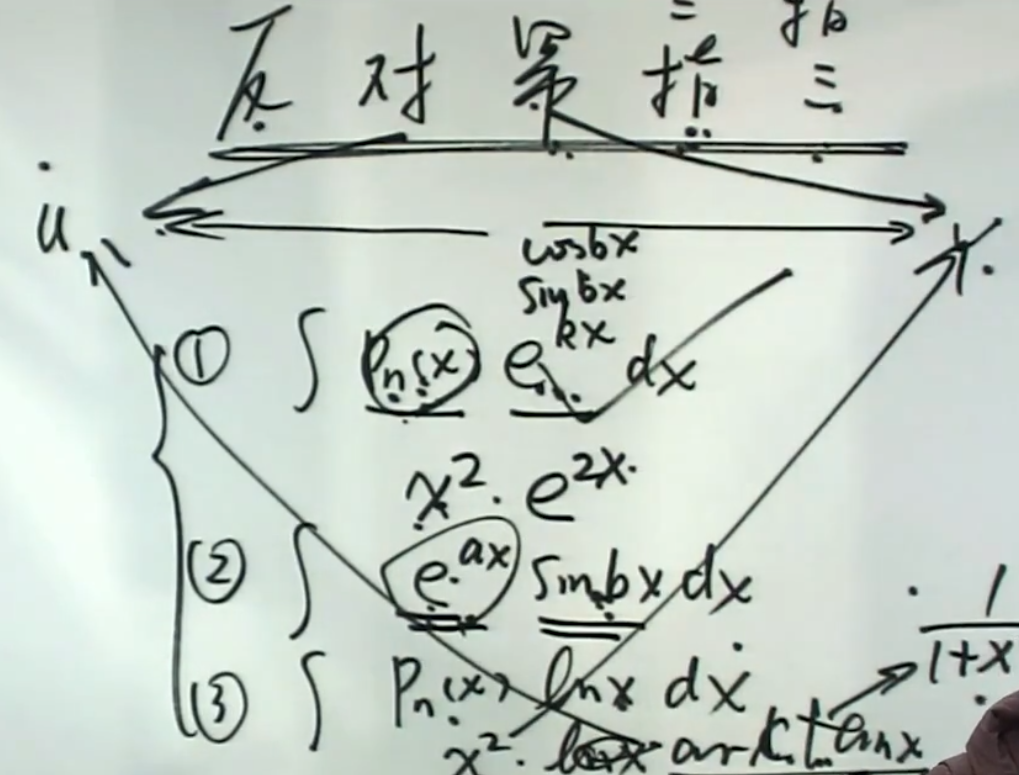 反 对 幂 指 三
u v.
cosbx
sinbx
① ∫ Pn(x) e^kx dx
x². e^2x.
② ∫ e^ax sinbx dx
③ ∫ Pn(x) lnx dx
x². arctanx
1/1+x